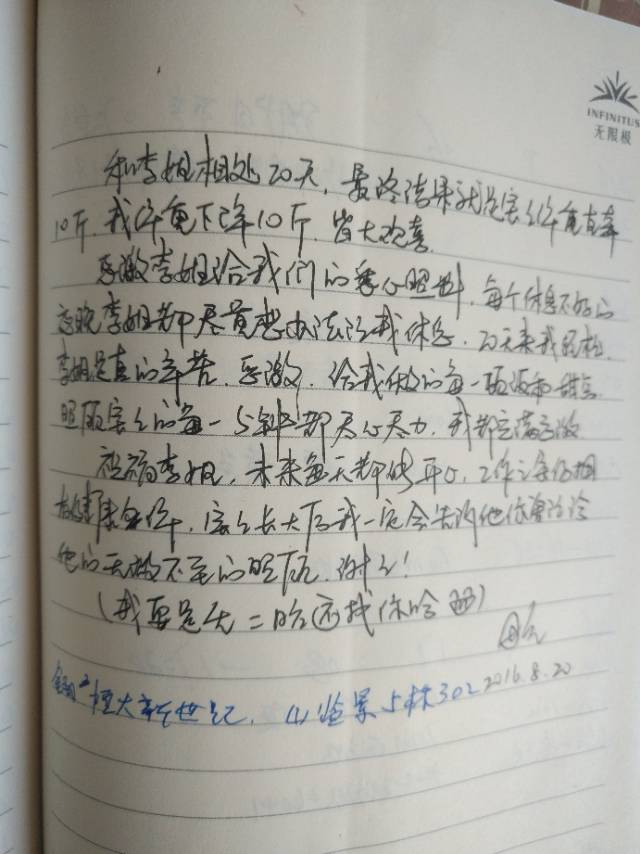 INFINITUS
无限极
和李姐相处20天,最终结果就是宝宝体重直奔
10斤,我体重下降10斤,皆大欢喜.
感激李姐给我们的悉心照料,每个休息不好的
夜晚李姐都尽量想办法让我休息,20天来我轻松,
李姐是真的辛苦,感激,给我做的每一顿饭和甜点
照顾宝宝的每一分钟都尽心尽力,我都充满感激
祝福李姐,未来每天都能开心,工作之余
健康身体,宝宝长大后我一定会告诉他你曾给
他的无微不至的照顾,谢谢!
(我要是生二胎还找你哈)
2016.8.20
恒大新世纪,5栋302